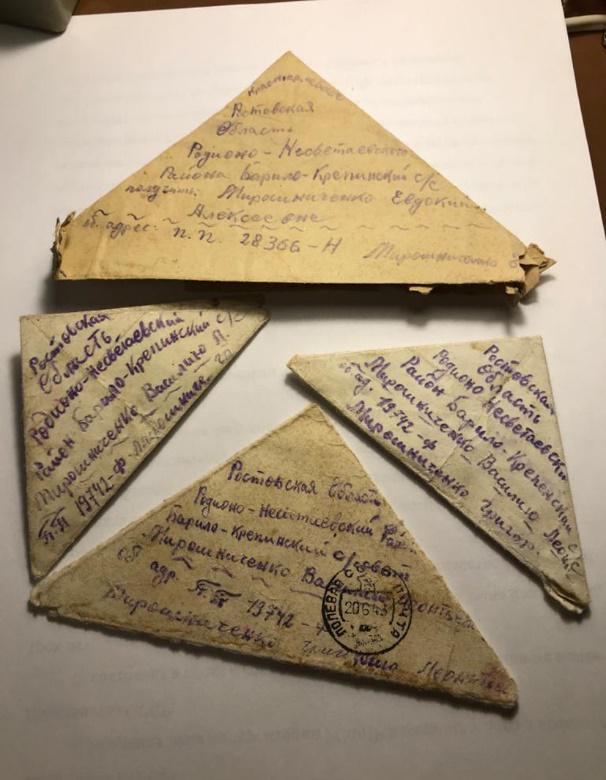 Красноармейское
Ростовская
Область
Родионо-Несветаевского
Района Барило-Крепинский с/с
получить Мирошниченко Евдокии
Алексеевне
адрес: п.п. 28366-Н Мирошниченко
Ростовская
Область
Родионо-Несветаевский
Район Барило-Крепинский с/с
Мирошниченко Василию Л.
П.П 19742-ф Мирошнич.
Ростовская
Области
Родионо Несветаевский
Район Барило Крепенской с/с
Мирошниченко Василию Леон-
об ад. 19742-ф
Мирошниченко Григор.
Ростовская Область
Родионо-Несветаевский Рай.
Барило-Крепинский с/совет
Мирошниченко
адр. П.П 19742-
Мирошниченко
ПОЛЕВАЯ ПОЧТА
20 6 43